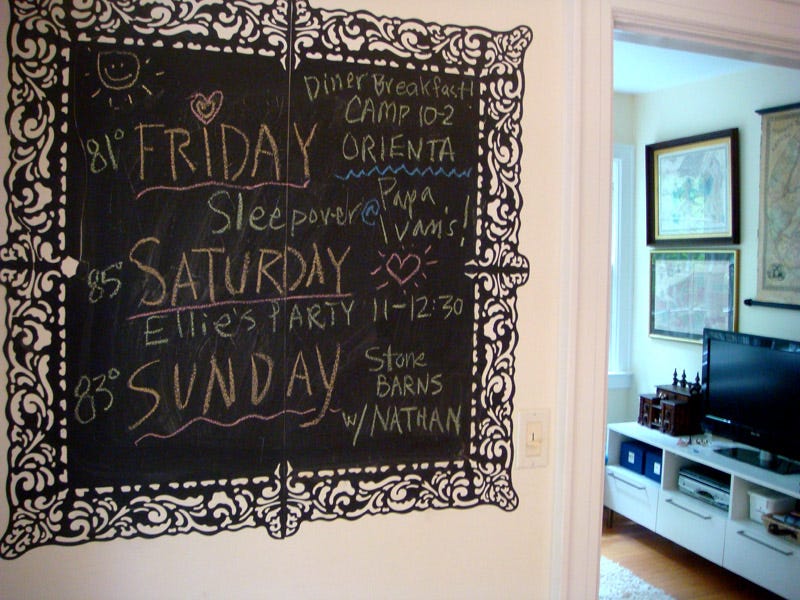 Diner Breakfast!
CAMP 10-2
81° FRIDAY ORIENTA
Sleepover @ Papa
Ivan's!
85° SATURDAY
Ellie's PARTY 11-12:30
83° SUNDAY Stone
BARNS
w/NATHAN